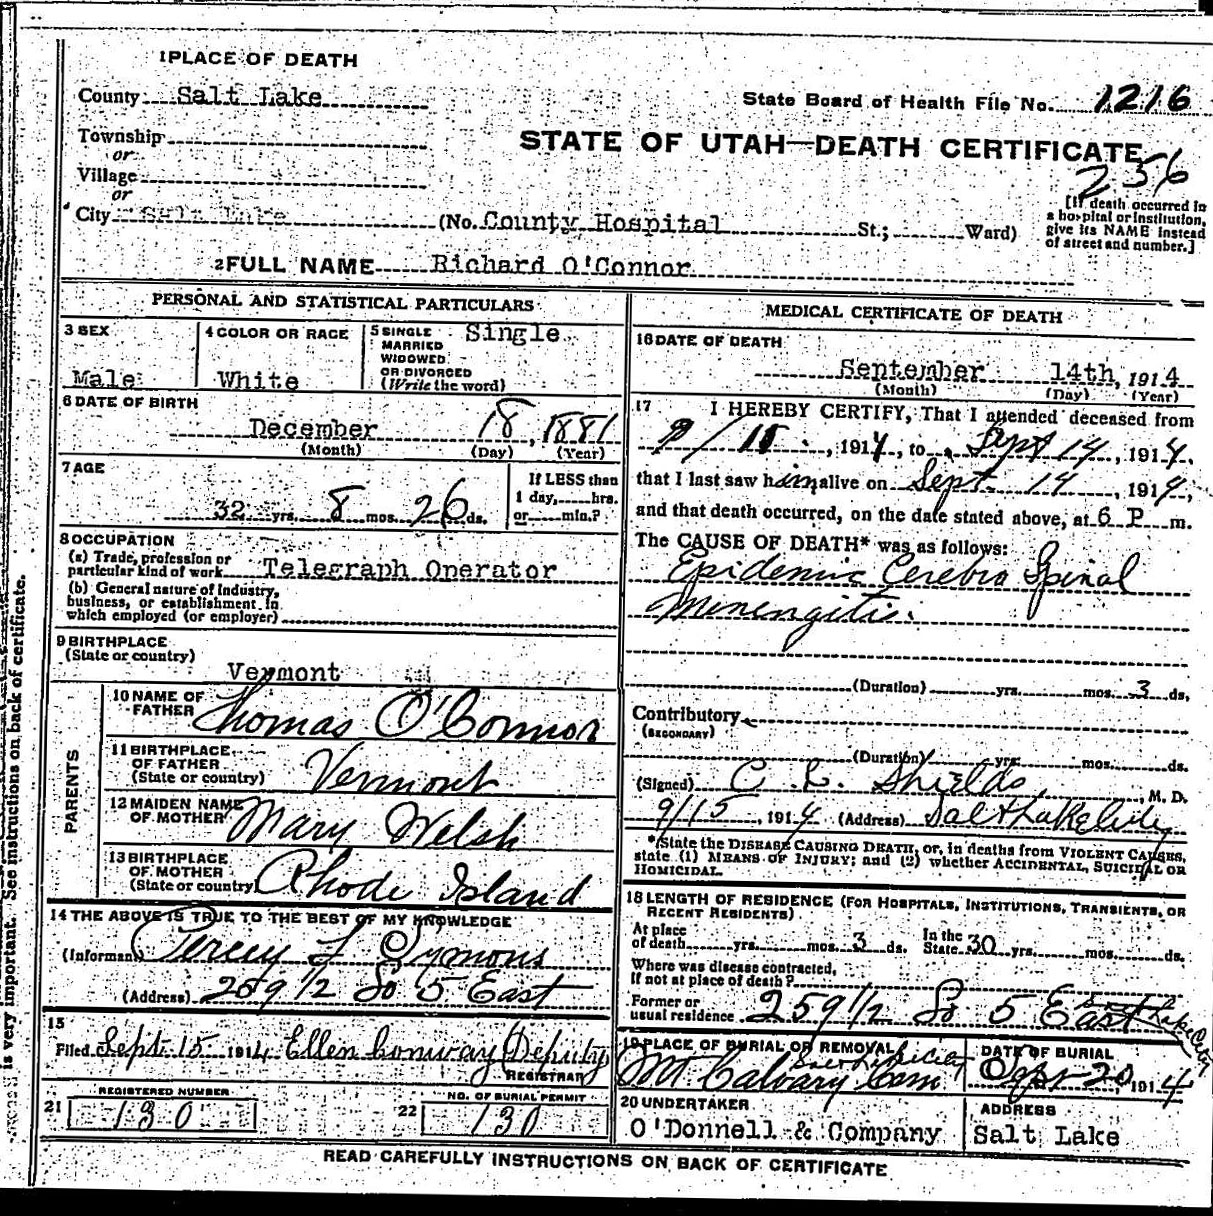 1 PLACE OF DEATH
County Salt Lake
State Board of Health File No. 1216
Township
or
Village
or
STATE OF UTAH—DEATH CERTIFICATE
256
City Salt Lake (No. County Hospital St.; Ward)
[If death occurred in
a hospital or institution,
give its NAME instead
of street and number.]
2 FULL NAME Richard O'Connor
PERSONAL AND STATISTICAL PARTICULARS
3 SEX
Male
4 COLOR OR RACE
White
5 SINGLE
MARRIED
WIDOWED
OR DIVORCED
(Write the word)
Single
6 DATE OF BIRTH
December 18, 1881
(Month) (Day) (Year)
7 AGE
32 yrs. 8 mos. 26 ds.
If LESS than
1 day, hrs.
or min.?
8 OCCUPATION
(a) Trade, profession or
particular kind of work Telegraph Operator
(b) General nature of Industry,
business, or establishment in
which employed (or employer)
9 BIRTHPLACE
(State or country)
Vermont
PARENTS
10 NAME OF
FATHER
Thomas O'Connor
11 BIRTHPLACE
OF FATHER
(State or country)
Vermont
12 MAIDEN NAME
OF MOTHER
Mary Welsh
13 BIRTHPLACE
OF MOTHER
(State or country)
Rhode Island
14 THE ABOVE IS TRUE TO THE BEST OF MY KNOWLEDGE
(Informant) Percey L Symons
(Address) 259 1/2 So 5 East
15
Filed Sept 15 1914 Ellen Conway Deputy
REGISTRAR
REGISTERED NUMBER
21 130
NO. OF BURIAL PERMIT
22 130
MEDICAL CERTIFICATE OF DEATH
16 DATE OF DEATH
September 14th, 1914
(Month) (Day) (Year)
17 I HEREBY CERTIFY, That I attended deceased from
9/11, 1914, to Sept 14, 1914,
that I last saw him alive on Sept. 14, 1914,
and that death occurred, on the date stated above, at 6 P m.
The CAUSE OF DEATH* was as follows:
Epidemic Cerebro Spinal
Minengitis.
(Duration) yrs. mos. 3 ds.
Contributory
(SECONDARY)
(Duration) yrs. mos. ds.
(Signed) C. L. Shields, M. D.
9/15, 1914 (Address) Salt Lake City
*State the DISEASE CAUSING DEATH, or, in deaths from VIOLENT CAUSES,
state (1) MEANS OF INJURY; and (2) whether ACCIDENTAL, SUICIDAL OR
HOMICIDAL.
18 LENGTH OF RESIDENCE (FOR HOSPITALS, INSTITUTIONS, TRANSIENTS, OR
RECENT RESIDENTS)
At place
of death yrs. mos. 3 ds.
In the
State 30 yrs. mos. ds.
Where was disease contracted,
If not at place of death?
Former or
usual residence 259 1/2 So 5 East Salt Lake City
19 PLACE OF BURIAL OR REMOVAL
Mt Calvary Cem
DATE OF BURIAL
Sept 20, 1914
20 UNDERTAKER
O'Donnell & Company
ADDRESS
Salt Lake
READ CAREFULLY INSTRUCTIONS ON BACK OF CERTIFICATE
is very important. See instructions on back of certificate.